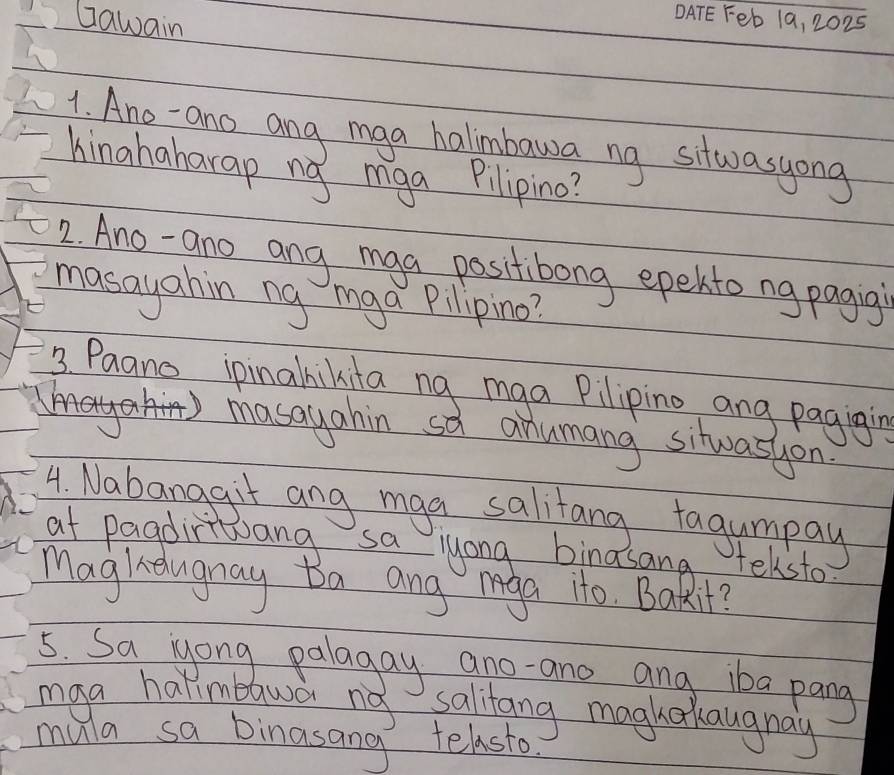 Gawain
DATE Feb 19, 2025
1. Ano-ano ang mga halimbawa ng sitwasyong
kinahaharap ng mga Pilipino?
2. Ano-ano ang mga positibong epekto ng pagigi
masayahin ng mga Pilipino?
3. Paano ipinakikita ng mga Pilipino ang pagiging
(mayahin) masayahin sa anumang sitwasyon.
4. Nabanggit ang mga salitang tagumpay
at pagdiriwang sa iyong binasang teksto.
Magkaugnay ba ang mga ito. Bakit?
5. Sa iyong palagay ano-ano ang iba pang
mga halimbawa ng salitang magkakaugnay
mula sa binasang teksto.